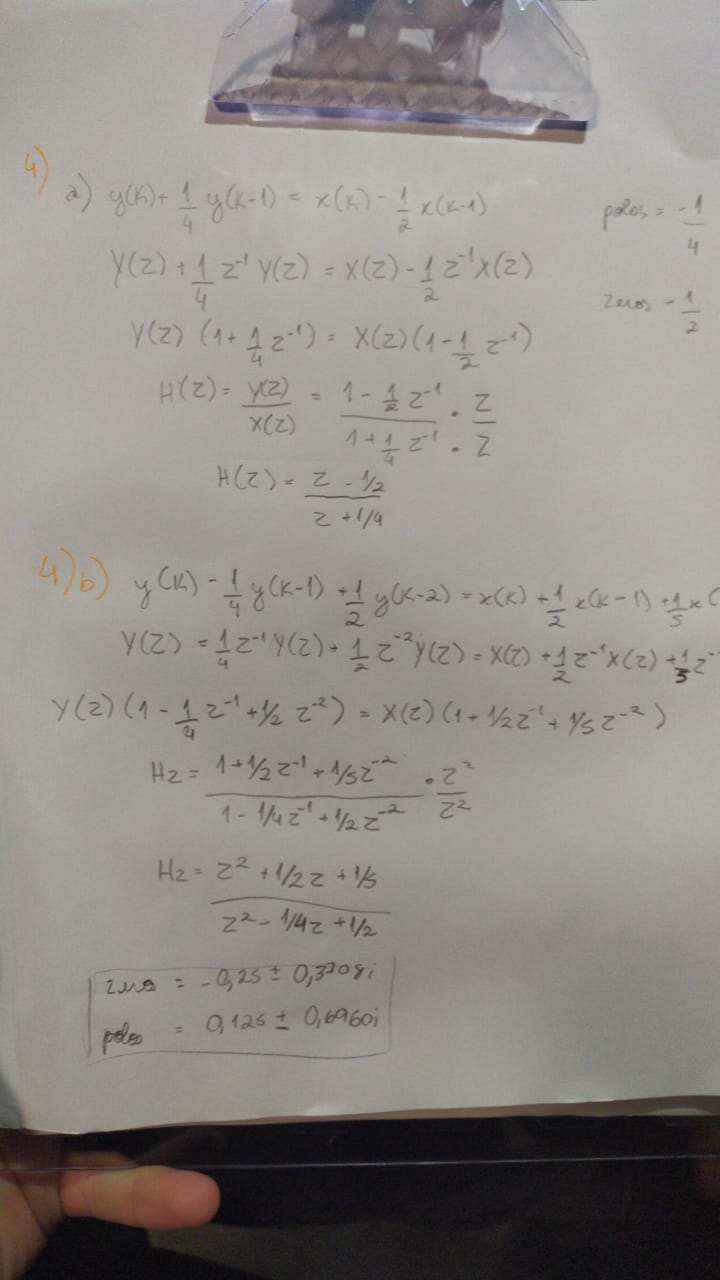 4)
a) y(k) + 1/4 y(k-1) = x(k) - 1/2 x(k-1)
polos = -1/4
Y(z) + 1/4 z⁻¹ Y(z) = X(z) - 1/2 z⁻¹ X(z)
zeros - 1/2
Y(z) (1 + 1/4 z⁻¹) = X(z) (1 - 1/2 z⁻¹)
H(z) = Y(z)/X(z) = (1 - 1/2 z⁻¹)/(1 + 1/4 z⁻¹) · z/z
H(z) = (z - 1/2)/(z + 1/4)
4) b) y(k) - 1/4 y(k-1) + 1/2 y(k-2) = x(k) + 1/2 x(k-1) + 1/5 x(
Y(z) = 1/4 z⁻¹ Y(z) + 1/2 z⁻² Y(z) = X(z) + 1/2 z⁻¹ X(z) + 1/5 z⁻
Y(z) (1 - 1/4 z⁻¹ + 1/2 z⁻²) = X(z) (1 + 1/2 z⁻¹ + 1/5 z⁻²)
Hz = (1 + 1/2 z⁻¹ + 1/5 z⁻²)/(1 - 1/4 z⁻¹ + 1/2 z⁻²) · z²/z²
Hz = (z² + 1/2 z + 1/5)/(z² - 1/4 z + 1/2)
zeros = -0,25 ± 0,3708i
polos = 0,125 ± 0,6960i